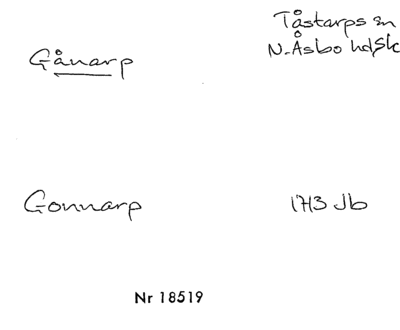 Gånarp
Tåstarps sn
N. Åsbo hd, Sk
Gonnarp
1713 Jb
Nr 18519